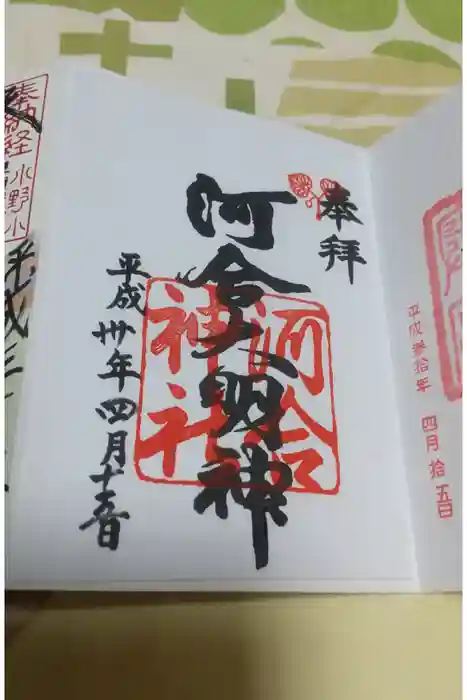 奉拝
河合大明神
河合
神社
平成卅年四月十五日
平成参拾年 四月拾五日
奉納経
平成三